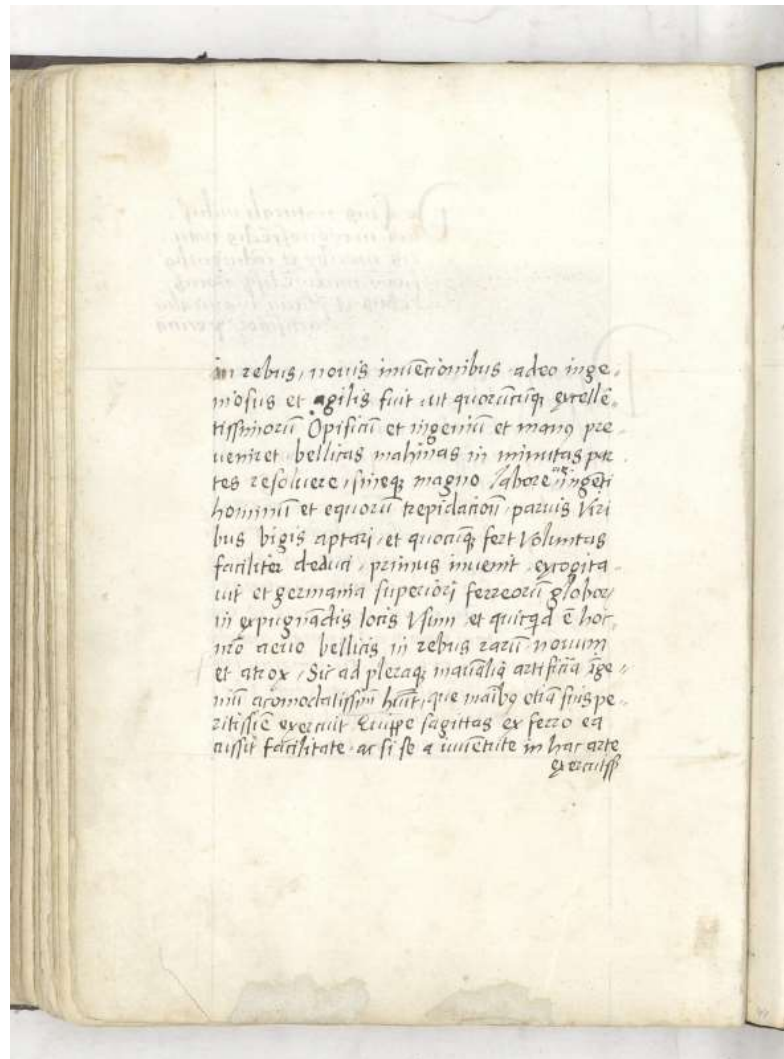 in rebus, nouis inuẽtionibus adeo inge-
niosus et agilis fuit ut quorũcũq; excellẽ-
tissimorũ Opificũ et ingeniũ et manꝰ pre-
ueniret bellicas mahinas in minutas par
tes resoluere, sineq; magno labore ac ingẽti
hominũ et equorũ trepidaciõẽ paruis Viri
bus bigis aptari, et quocũq; fert Voluntas
faciliter deduci, primus inuenit excogita-
uit et germania superiori ferreorũ globor,
in expugnãdis locis Vsum et quicq̃d ẽ hoc
nrõ aeuo bellicis in rebus rarũ nouum
et atrox, Sic ad pleraq; manualia artificia ĩge-
niũ acomodatissim̃ hũit, que maĩbꝰ etiã suis pe-
ritissiẽ exercuit Quippe sagittas ex ferro ea
cussit facilitate ac si se a iuuẽtute in hac arte
exercuiss